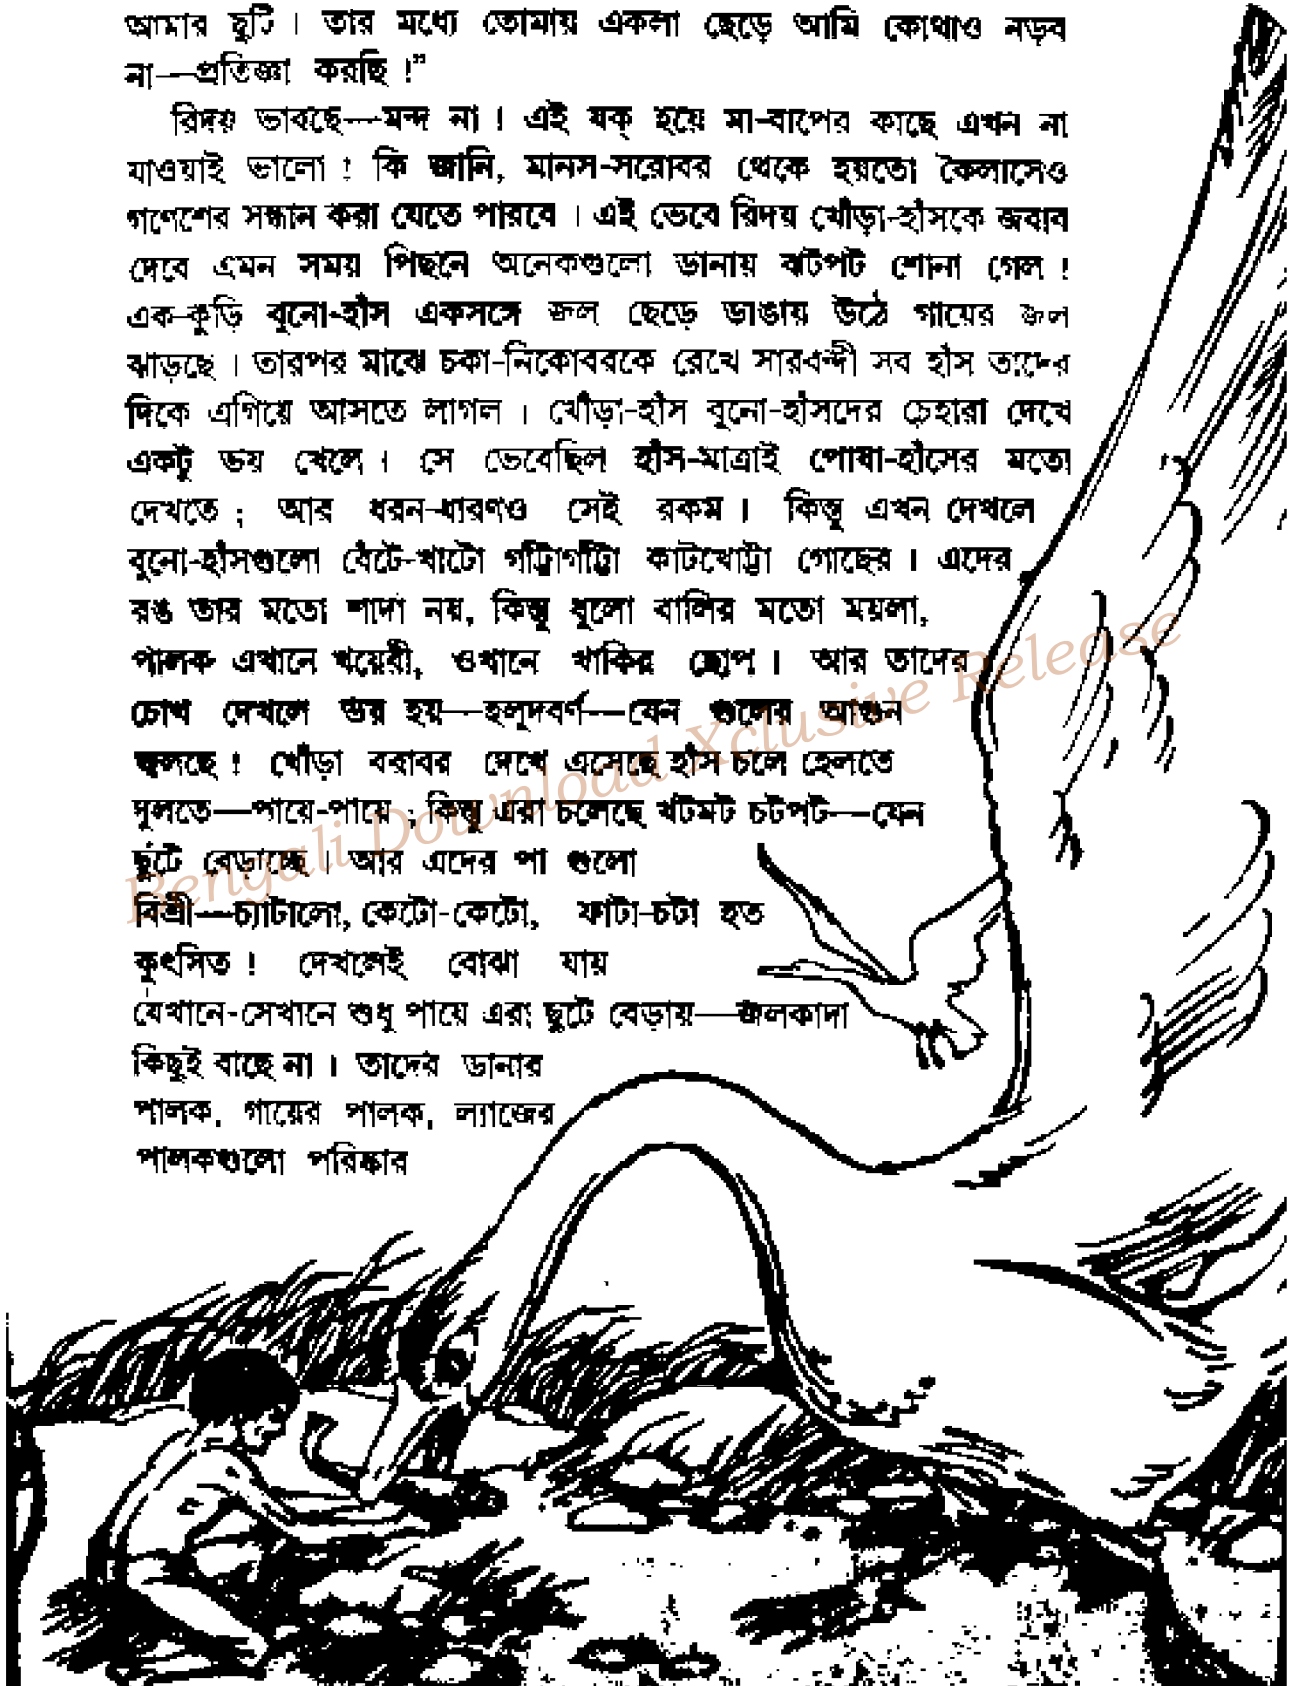 আমার ছুটি । তার মধ্যে তোমায় একলা ছেড়ে আমি কোথাও নড়ব
না—প্রতিজ্ঞা করছি !”
রিদয় ভাবছে—মন্দ না ! এই যক্ হয়ে মা-বাপের কাছে এখন না
যাওয়াই ভালো ! কি জানি, মানস-সরোবর থেকে হয়তো কৈলাসেও
গণেশের সন্ধান করা যেতে পারবে । এই ভেবে রিদয় খোঁড়া-হাঁসকে জবাব
দেবে এমন সময় পিছনে অনেকগুলো ডানায় ঝটপট শোনা গেল !
এক-কুড়ি বুনো-হাঁস একসঙ্গে জল ছেড়ে ডাঙায় উঠে গায়ের জল
ঝাড়ছে । তারপর মাঝে চকা-নিকোবরকে রেখে সারবন্দী সব হাঁস তাদের
দিকে এগিয়ে আসতে লাগল । খোঁড়া-হাঁস বুনো-হাঁসদের চেহারা দেখে
একটু ভয় খেলে । সে ভেবেছিল হাঁস-মাত্রাই পোষা-হাঁসের মতো
দেখতে ; আর ধরন-ধারণও সেই রকম । কিন্তু এখন দেখলে
বুনো-হাঁসগুলো বেঁটে-খাটো গাঁট্টাগাঁট্টা কাটখোট্টা গোছের । এদের
রঙ তার মতো শাদা নয়, কিন্তু ধুলো বালির মতো ময়লা,
পালক এখানে খয়েরী, ওখানে খাকির ছোপ । আর তাদের
চোখ দেখলে ভয় হয়—হলুদবর্ণ—যেন গুলের আগুন
জ্বলছে ! খোঁড়া বরাবর দেখে এসেছে হাঁস চলে হেলতে
দুলতে—পায়ে-পায়ে ; কিন্তু এরা চলেছে খটমট চটপট—যেন
ছুটে বেড়াচ্ছে । আর এদের পা গুলো
বিশ্রী—চ্যাটালো, কেটো-কেটো, ফাটা-চটা হত
কুৎসিত ! দেখলেই বোঝা যায়
যেখানে-সেখানে শুধু পায়ে এরা ছুটে বেড়ায়—জলকাদা
কিছুই বাছে না । তাদের ডানার
পালক, গায়ের পালক, ল্যাজের
পালকগুলো পরিষ্কার
Bengali Download Xclusive Release